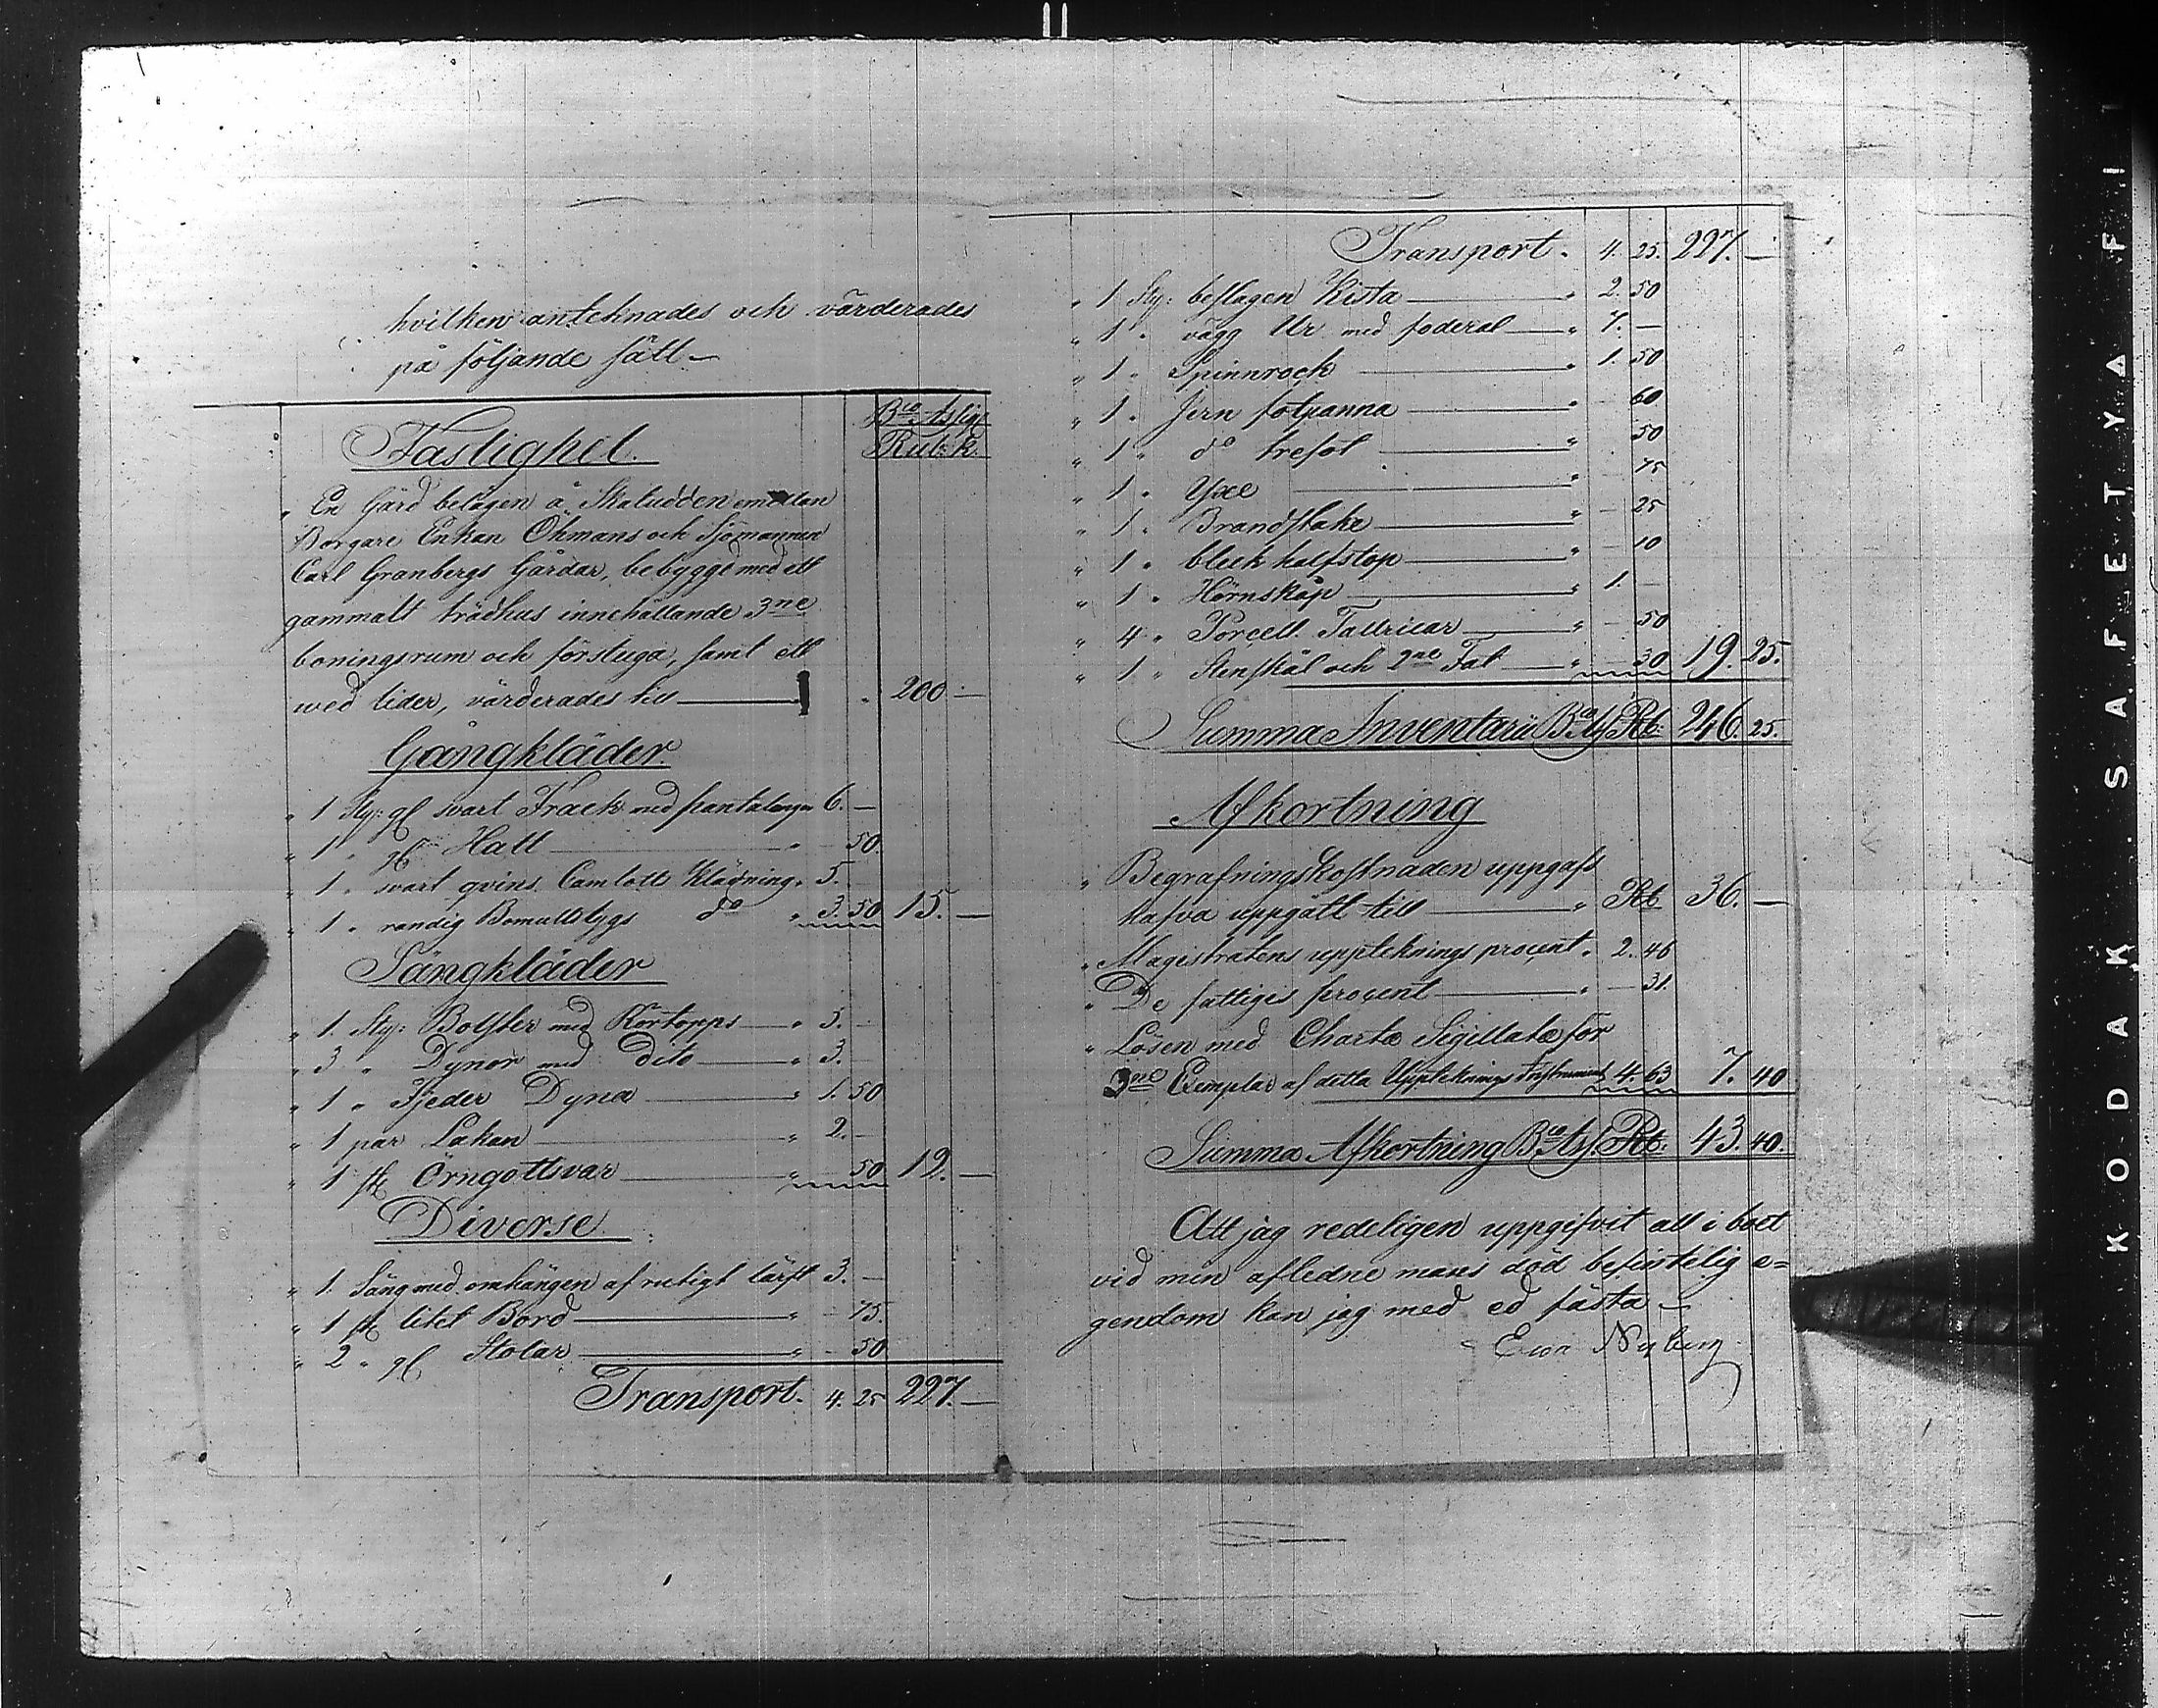 hvilken antecknades och värderades
på följande sätt—
Bco Assign
Rub: k.
Fastighet.
„ En Gård belägen å Skatudden emellan
Borgare Enkan Öhmans och Sjömannen
Carl Granbergs Gårdar, bebyggd med ett
gammalt trädhus innehållande 3ne
boningsrum och förstuga, samt ett
wed lider, värderades till — „ 200 —
Gångkläder.
„ 1 Sty: gl svart Frack med pantalonger 6. —
„ 1 „ gl Hatt — „ — 50.
„ 1 „ svart qvins Camlott Klädning „ 5. —
„ 1 „ randig Bomullstygs do „ 3. 50 15. —
Sängkläder
„ 1. Sty: Bolster med Körtopps — „ 5. —
„ 3 „ Dynor med dito — „ 3. —
„ 1 „ Fjeder Dyna — „ 1. 50
„ 1 par Lakan — „ 2. —
„ 1 st Örngottsvar — „ — 50 12. —
Diverse.
„ 1. Säng med omhängen af rutigt lärft 3. —
„ 1 st litet Bord — „ — 75.
„ 2 „ gl Stolar — „ — 50
Transport. 4. 25 227. —
Transport. 4. 25. 227. —
„ 1 Sty: beslagen Kista — „ 2. 50
„ 1 „ vägg Ur med foderal — „ 7. —
„ 1 „ Spinnrock — „ 1. 50
„ 1 „ Jern fotpanna — „ — 60
„ 1 „ do trefot — „ — 50
„ 1 „ Yxe — „ — 75
„ 1 „ Brandstake — „ — 25
„ 1 „ bleck halfstop — „ — 10
„ 1 „ Hörnskåp — „ 1. —
„ 4 „ Porcell. Tallrickar — „ — 50
„ 1 „ Stenskål och 2ne Fat — „ — 30 19. 25.
Summa Inventarii Bco Ass Rb: 246. 25.
Afkortning
„ Begrafningskostnaden uppgafs
hafva uppgått till — „ Rb 36. —
„ Magistratens uppteknings procent. 2. 46
„ De fattiges procent — „ — 31.
„ Lösen med Chartæ Sigillatæ för
3ne Exemplar af detta Uppteknings Instrument 4. 63 7. 40
Summa Afkortning Bco Ass. Rb: 43. 40.
Att jag redeligen uppgifvit all i boet
vid min afledne mans död befintelig e=
gendom kan jag med ed fästa —
Eva Nyberg
KODAK . SAFETY A FI